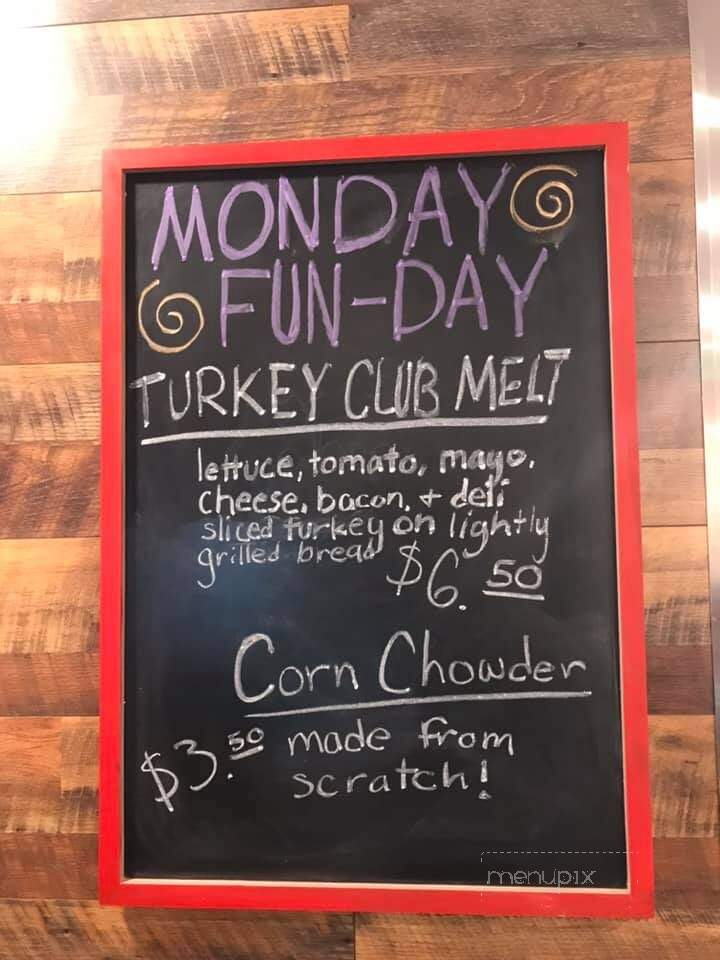 MONDAY
FUN-DAY
TURKEY CLUB MELT
lettuce, tomato, mayo,
cheese, bacon, + deli
sliced turkey on lightly
grilled bread $6.50
Corn Chowder
$3.50 made from
scratch!
menupix